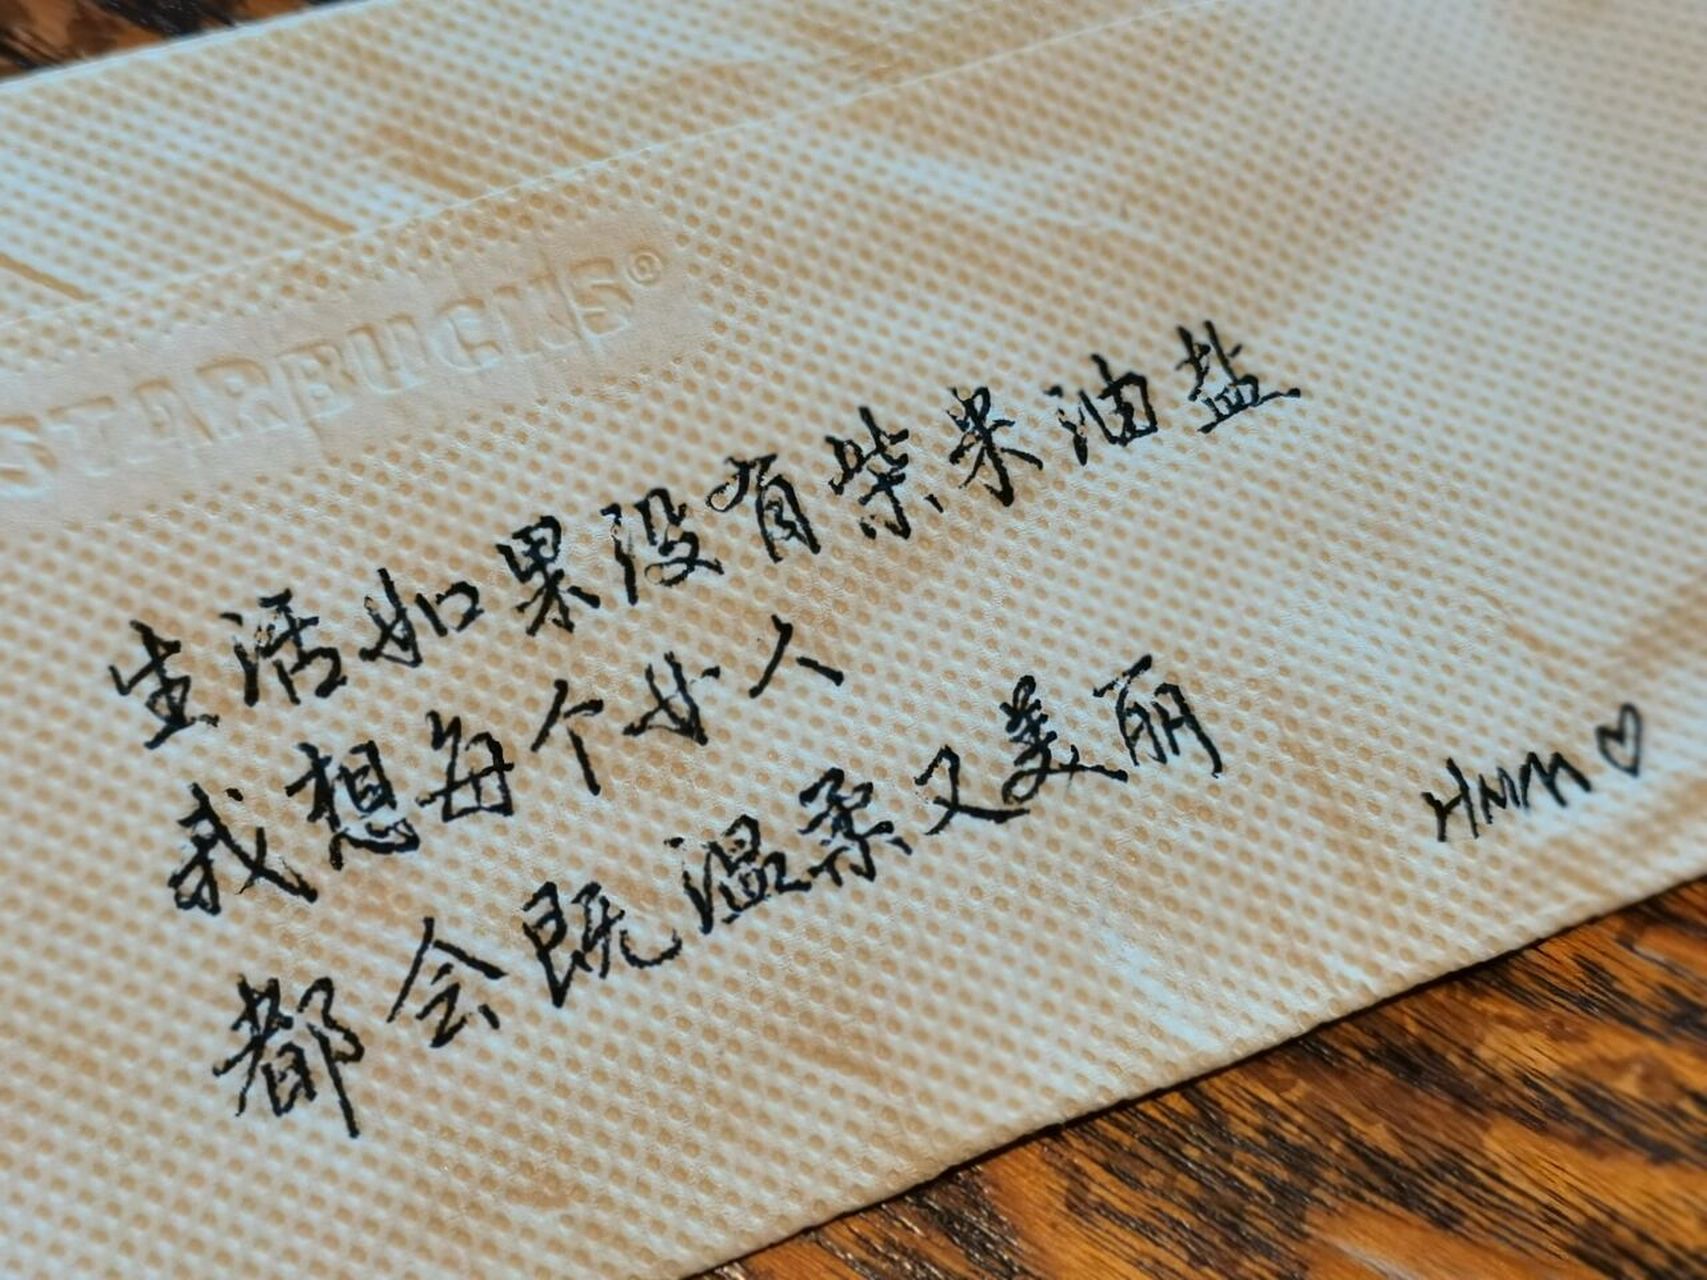 STARBUCKS®
生活如果没有柴米油盐
我想每个女人
都会既温柔又美丽
HMM♡